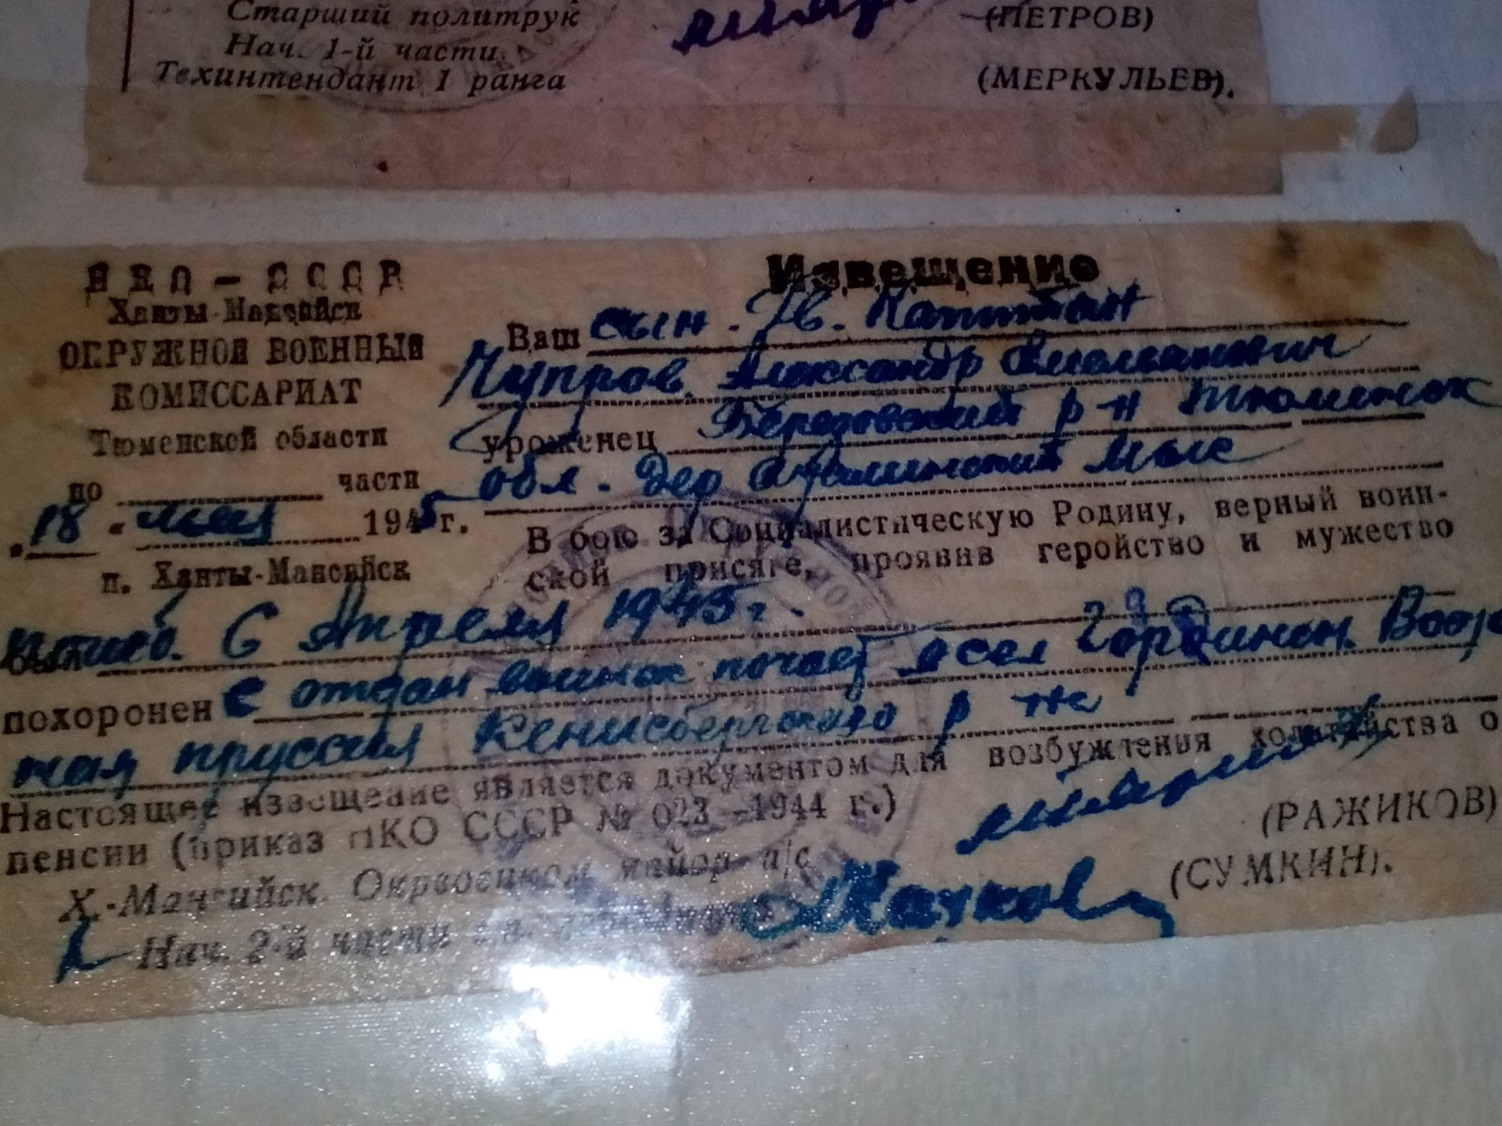 Старший политрук
(ПЕТРОВ)
Нач. 1-й части
Техинтендант 1 ранга
(МЕРКУЛЬЕВ).
НКО - СССР
Ханты-Мансийск
ОКРУЖНОЙ ВОЕННЫЙ
КОМИССАРИАТ
Тюменской области
по части
18 " мая 1945 г.
п. Ханты-Мансийск
Извещение
Ваш сын. Гв. Капитан
Чупров Александр
уроженец Березовский р-н Тюменск
обл. дер Мыс
В бою за Социалистическую Родину, верный воин-
ской присяге, проявив геройство и мужество
погиб. 6 Апреля 1945 г.
похоронен с отдан воинск почает в сел
ная пруссия Кенисбергского р на
Настоящее извещение является документом для возбуждения ходатайства о
пенсии (приказ НКО СССР № 023 -1944 г.)
Х.-Мансийск. Окрвоенком майор а/с
(РАЖИКОВ)
Нач. 2-й части
(СУМКИН).